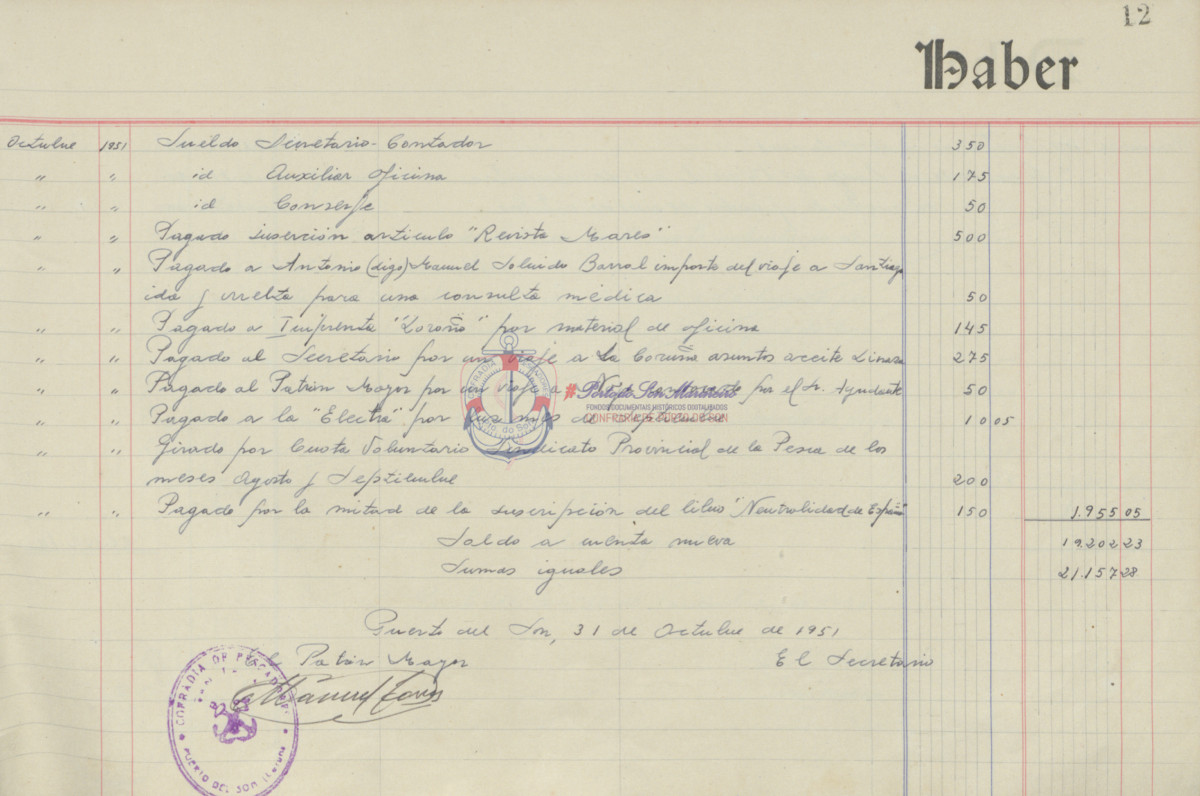 12
Haber
Octubre 1951 Sueldo Secretario-Contador 350
" " id Auxiliar oficina 175
" " id Conserje 50
" " Pagado inserción articulo "Revista Mares" 500
" " Pagado a Antonio (digo) Manuel Barral importe del viaje a Santiago
ida y vuelta para una consulta médica 50
" " Pagado a Imprenta "Loroño" por material de oficina 145
" " Pagado al Secretario por un viaje a La Coruña asuntos aceite Linaza 275
" " Pagado al Patrón Mayor por un viaje a Noya por el Sr. Ayudante 50
" " Pagado a la "Electra" por luz mes de 10 05
" " Girado por Cuota Voluntario Sindicato Provincial de la Pesca de los
meses Agosto y Septiembre 200
" " Pagado por la mitad de la suscripción del libro "Neutralidad de España" 150 1.955 05
Saldo a cuenta nueva 19.202 23
Sumas iguales 21.157 28
Puerto del Son, 31 de Octubre de 1951
Patrón Mayor El Secretario
Manuel
COFRADIA DE PESCADORES
PUERTO DEL SON
COFRADIA
Pto. do Son
# Porto do Son Mariñeiro
FONDOS DOCUMENTAIS HISTÓRICOS DIXITALIZADOS
CONFRARÍA DE PORTO DO SON